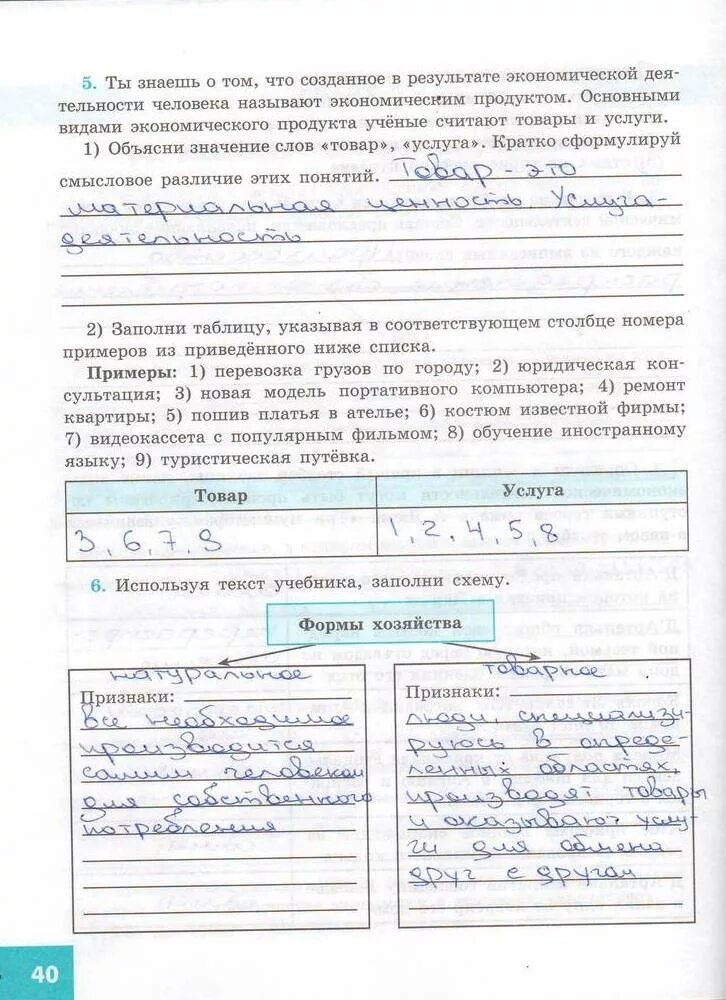 5. Ты знаешь о том, что созданное в результате экономической дея-
тельности человека называют экономическим продуктом. Основными
видами экономического продукта учёные считают товары и услуги.
1) Объясни значение слов «товар», «услуга». Кратко сформулируй
смысловое различие этих понятий. Товар - это
материальная ценность Услуга-
деятельность
2) Заполни таблицу, указывая в соответствующем столбце номера
примеров из приведённого ниже списка.
Примеры: 1) перевозка грузов по городу; 2) юридическая кон-
сультация; 3) новая модель портативного компьютера; 4) ремонт
квартиры; 5) пошив платья в ателье; 6) костюм известной фирмы;
7) видеокассета с популярным фильмом; 8) обучение иностранному
языку; 9) туристическая путёвка.
Товар Услуга
3, 6, 7, 9 1, 2, 4, 5, 8
6. Используя текст учебника, заполни схему.
Формы хозяйства
натуральное
Признаки:
все необходимое
производится
самим человеком
для собственного
потребления
товарное
Признаки:
люди, специализи-
руюсь в опреде-
ленных областях,
производят товары
и оказывают услу-
ги для обмена
друг с другом
40